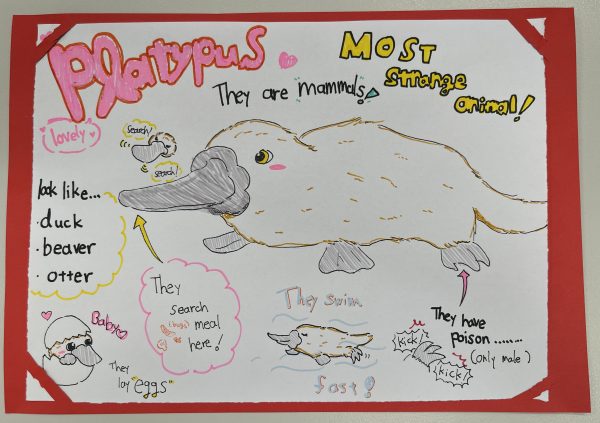 Platypus
MOST
strange
animal!
They are mammals!
lovely
search!
search!
look like...
· duck
· beaver
· otter
They
search
(bugs) meal
here!
They swim
fast!
They have
poison........
(only male)
kick!
kick!
Baby
They
lay "eggs"